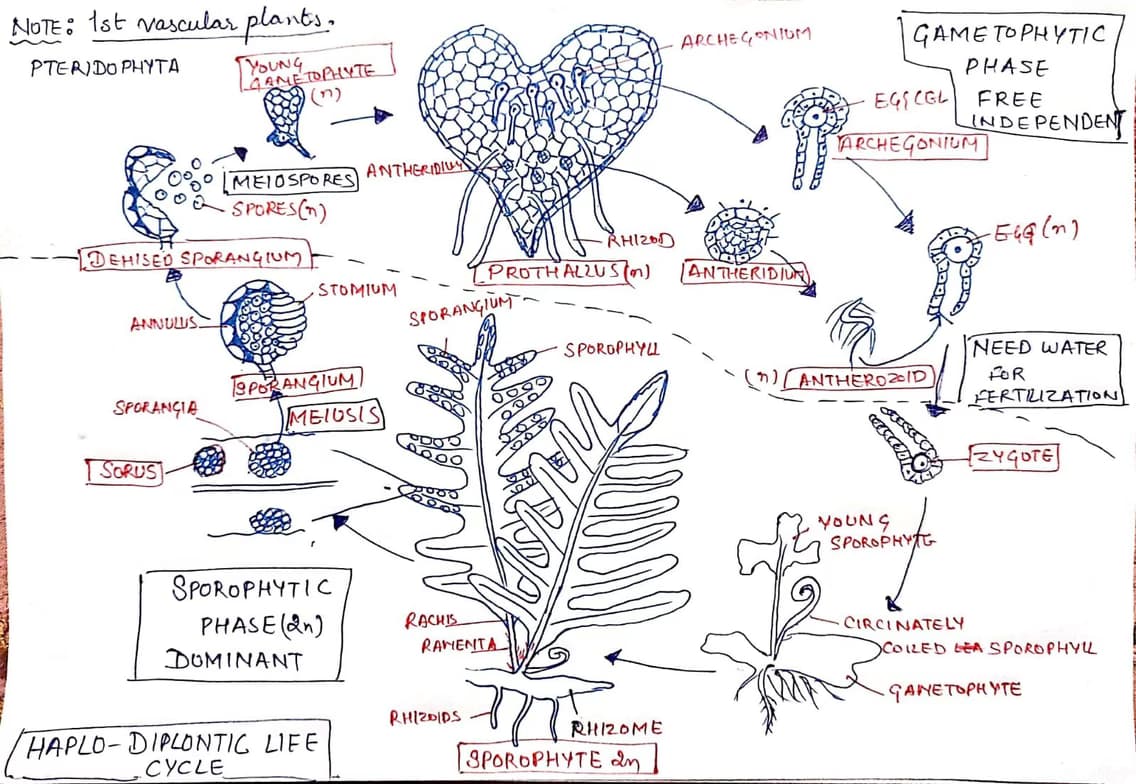 NOTE: 1st vascular plants.
PTERIDOPHYTA
YOUNG
GAMETOPHYTE
(n)
ARCHEGONIUM
GAMETOPHYTIC
PHASE
FREE
INDEPENDENT
EGG CEL
ARCHEGONIUM
ANTHERIDIUM
MEIOSPORES
SPORES(n)
EGG (n)
RHIZOD
DEHISED SPORANGIUM
PROTHALLUS(n)
ANTHERIDIUM
STOMIUM
ANNULUS
SPORANGIUM
SPOROPHYLL
NEED WATER
FOR
FERTILIZATION
(n) ANTHEROZOID
SPORANGIUM
SPORANGIA
MEIOSIS
SORUS
ZYGOTE
YOUNG
SPOROPHYTE
SPOROPHYTIC
PHASE(2n)
DOMINANT
RACHIS
RAMENTA
CIRCINATELY
COILED SPOROPHYLL
GAMETOPHYTE
RHIZOIDS
RHIZOME
SPOROPHYTE 2n
HAPLO-DIPLONTIC LIFE
CYCLE